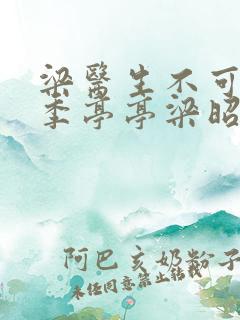 梁醫生不可
季亭亭梁昭
阿巴亥奶粉子
未经同意禁止转载